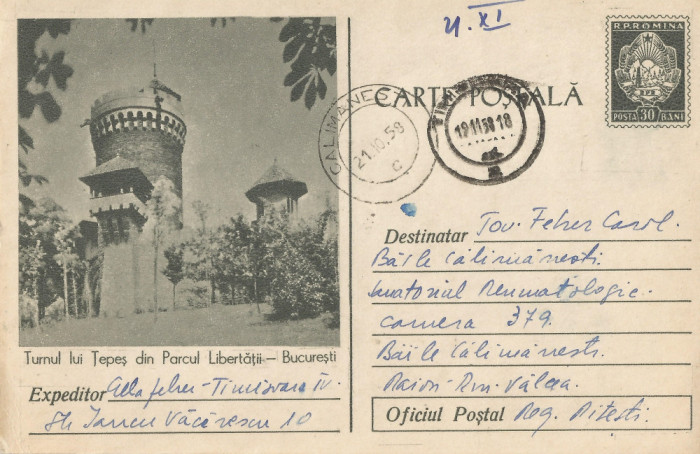 4. XI
R.P. ROMINA
RPR
POSTA 30 BANI
CARTE POȘTALĂ
CALIMANE
21.10.58
C
19.11.58.18
Turnul lui Țepeș din Parcul Libertății — București
Expeditor Feher - Timisoara IV.
Str Iancu Văcărescu 10
Destinatar Tov. Feher Carol
Băile Călimănești.
Sanatoriul Reumatologic.
camera 379.
Băile Călimănești.
Raion. Rm. Vâlcea
Oficiul Poștal Reg. Pitești.